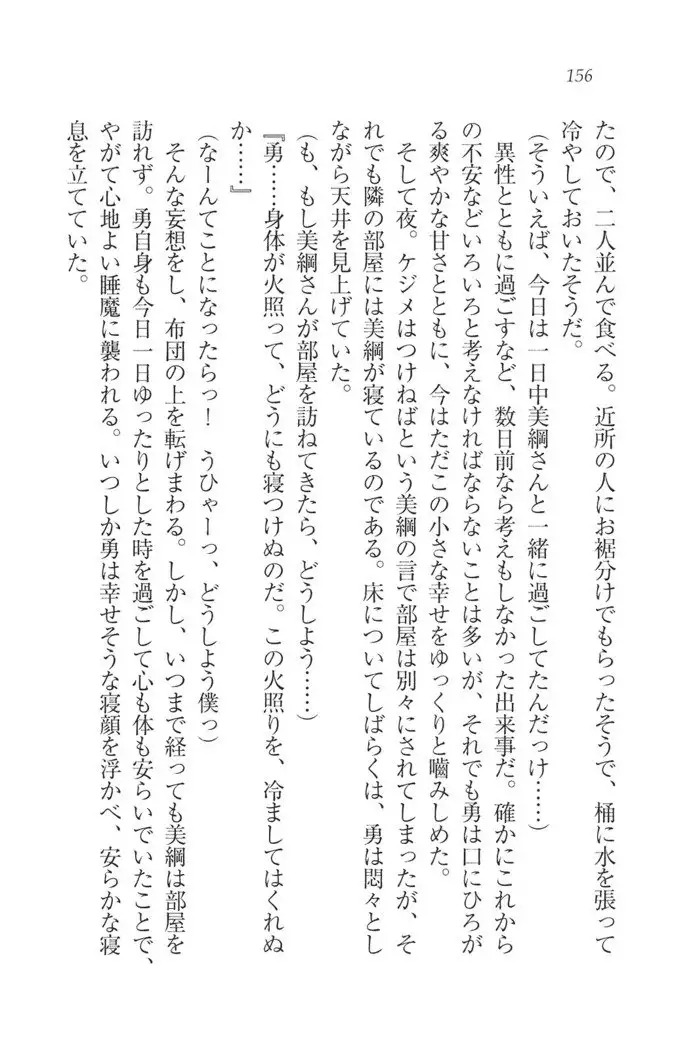 156
たので、二人並んで食べる。近所の人にお裾分けでもらったそうで、桶に水を張って
冷やしておいたそうだ。
（そういえば、今日は一日中美綱さんと一緒に過ごしてたんだっけ……）
異性とともに過ごすなど、数日前なら考えもしなかった出来事だ。確かにこれから
の不安などいろいろと考えなければならないことは多いが、それでも勇は口にひろが
る爽やかな甘さとともに、今はただこの小さな幸せをゆっくりと嚙みしめた。
そして夜。ケジメはつけねばという美綱の言で部屋は別々にされてしまったが、そ
れでも隣の部屋には美綱が寝ているのである。床についてしばらくは、勇は悶々とし
ながら天井を見上げていた。
（も、もし美綱さんが部屋を訪ねてきたら、どうしよう……）
『勇……身体が火照って、どうにも寝つけぬのだ。この火照りを、冷ましてはくれぬ
か……』
（なーんてことになったらっ！　うひゃーっ、どうしよう僕っ）
そんな妄想をし、布団の上を転げまわる。しかし、いつまで経っても美綱は部屋を
訪れず。勇自身も今日一日ゆったりとした時を過ごして心も体も安らいでいたことで、
やがて心地よい睡魔に襲われる。いつしか勇は幸せそうな寝顔を浮かべ、安らかな寝
息を立てていた。